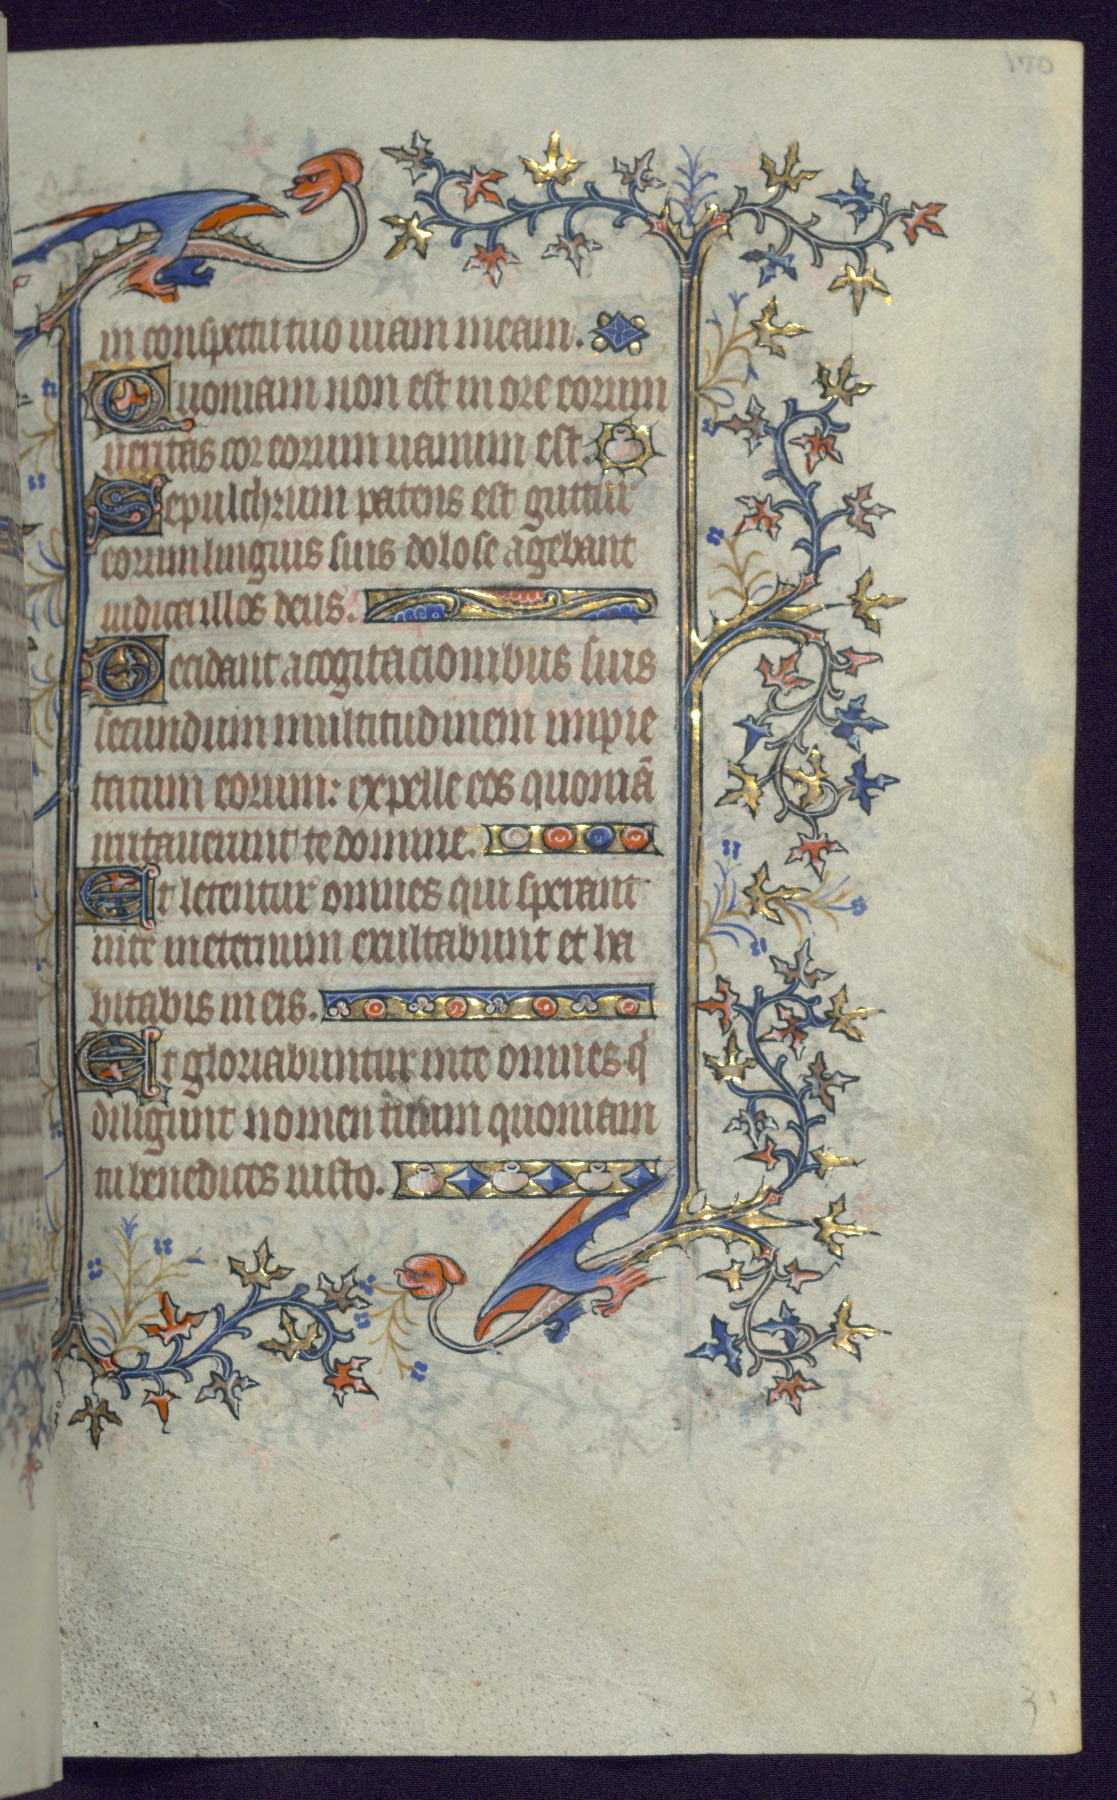 170
in conspectu tuo uiam meam.
Quoniam non est in ore eorum
ueritas cor eorum uanum est.
Sepulchrum patens est guttur
eorum linguis suis dolose agebant
iudica illos deus.
Decidant a cogitacionibus suis
secundum multitudinem impie
tatum eorum: expelle eos quoniã
irritauerunt te domine.
Et letentur omnes qui sperant
in te in eternum exultabunt et ha
bitabis in eis.
Et gloriabuntur in te omnes q̇
diligunt nomen tuum quoniam
tu benedices iusto.